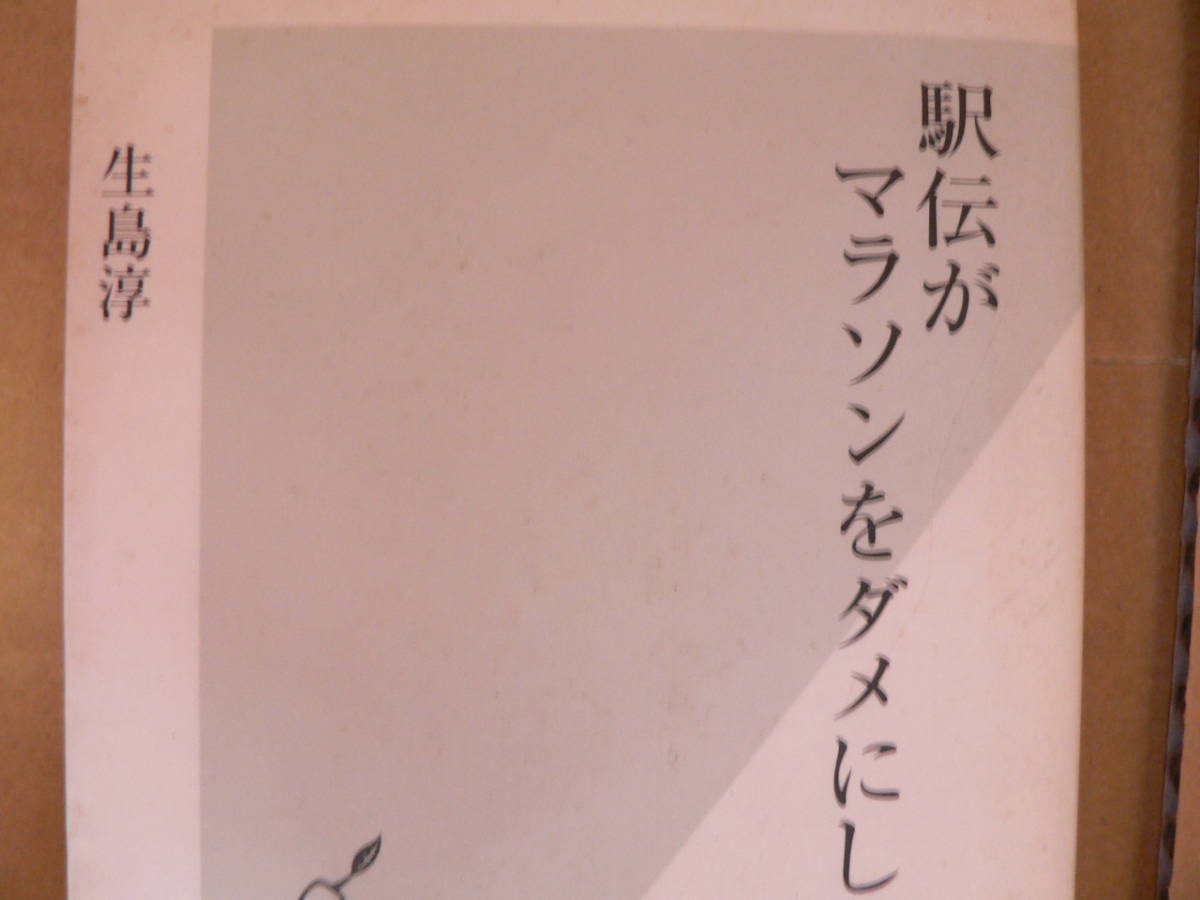 駅伝が
マラソンをダメにし
生島淳